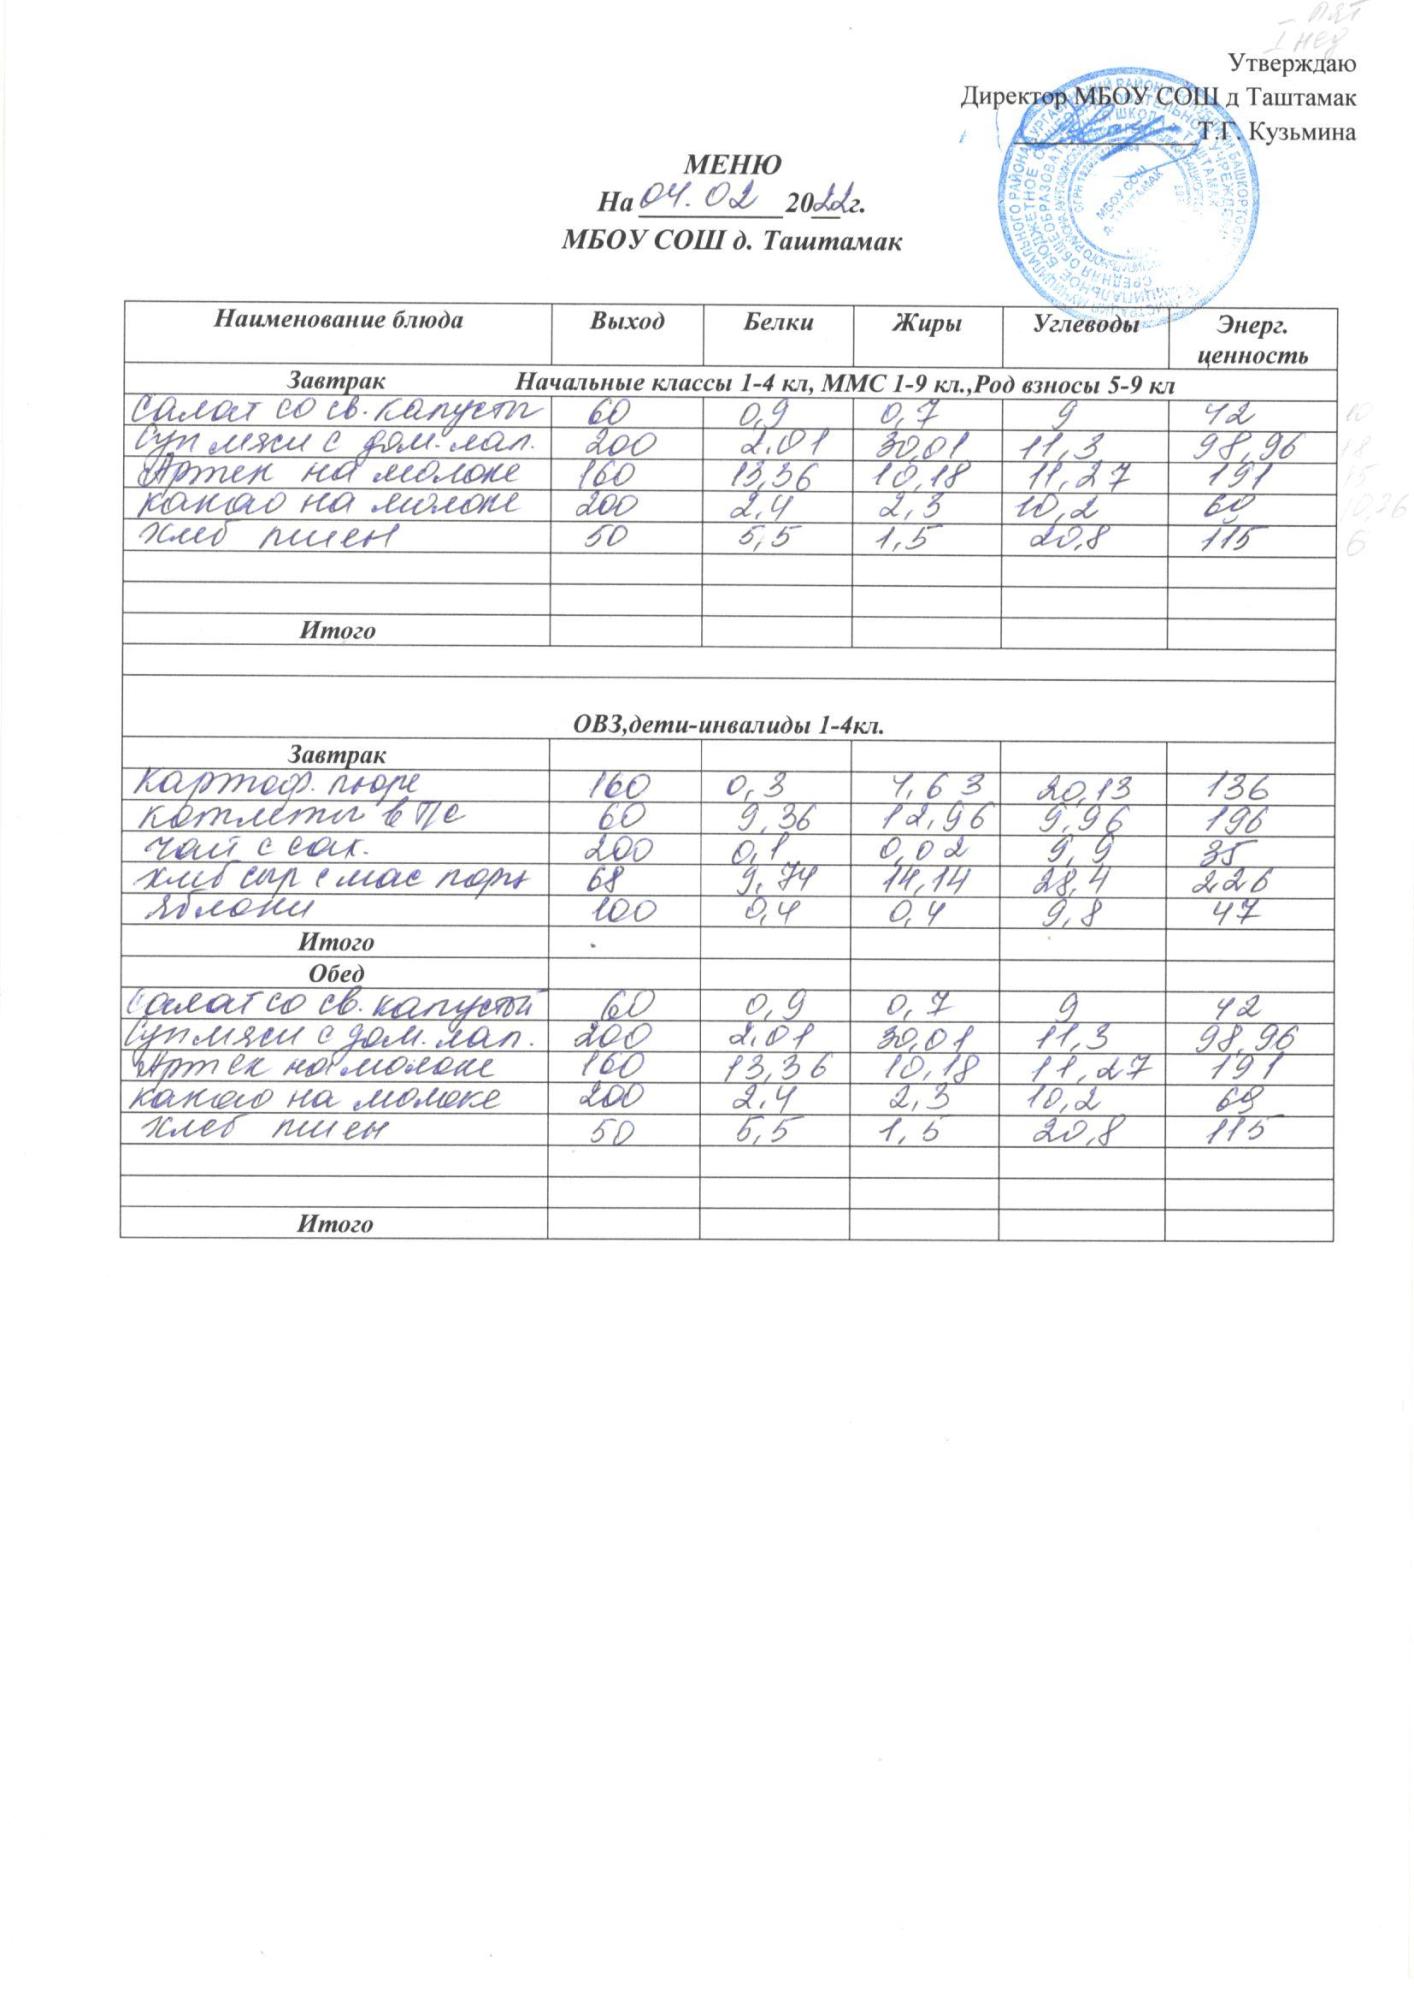 I пят
I нед
Утверждаю
Директор МБОУ СОШ д Таштамак
Т.Г. Кузьмина
МЕНЮ
На 04.02 2022г.
МБОУ СОШ д. Таштамак
Наименование блюда Выход Белки Жиры Углеводы Энерг. ценность
Завтрак Начальные классы 1-4 кл, ММС 1-9 кл.,Род взносы 5-9 кл
Салат со св. капусты 60 0,9 0,7 9 42 10
Суп мясн с дом. лап. 200 2.01 30,01 11,3 98,96 18
Артек на молоке 160 13,36 10,18 11,27 191 15
какао на молоке 200 2,4 2,3 10,2 69 10,26
хлеб пшен 50 5,5 1,5 20,8 115 6
Итого
ОВЗ,дети-инвалиды 1-4кл.
Завтрак
картоф. пюре 160 0,3 4,63 20,13 136
котлеты в т/с 60 9,36 12,96 9,96 196
чай с сах. 200 0,1 0,02 9,9 35
хлеб сыр с мас порц 68 9,74 14,14 28,4 226
яблоки 100 0,4 0,4 9,8 47
Итого
Обед
Салат со св. капустой 60 0,9 0,7 9 42
Суп мясн с дом. лап. 200 2.01 30,01 11,3 98,96
Артек на молоке 160 13,36 10,18 11,27 191
какао на молоке 200 2,4 2,3 10,2 69
хлеб пшен 50 5,5 1,5 20,8 115
Итого